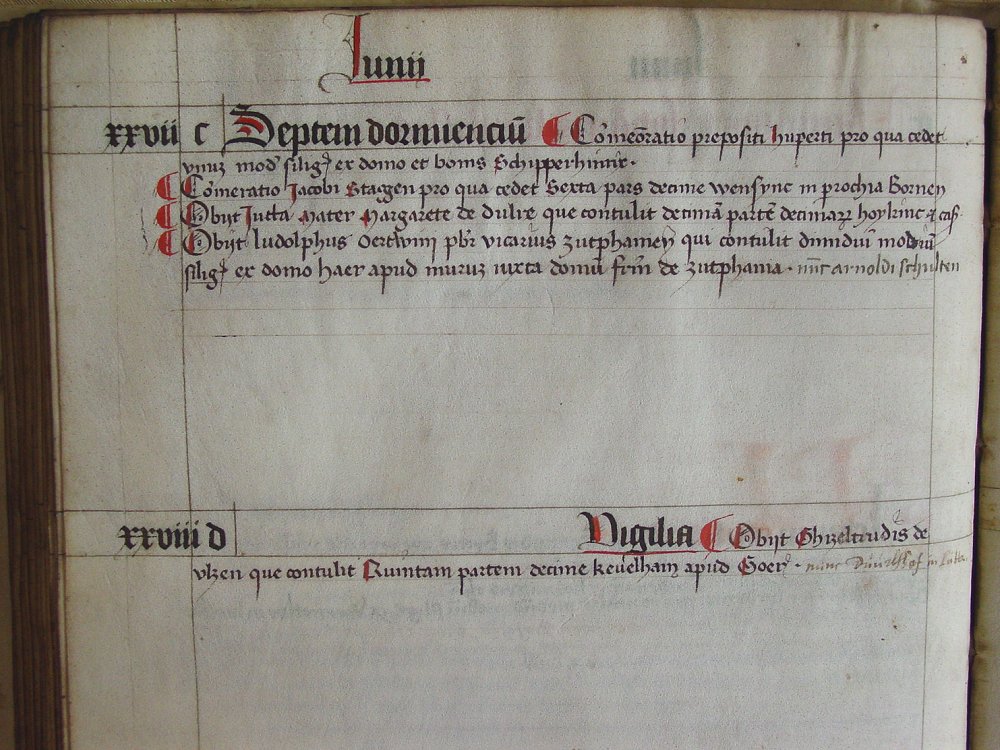 Iunii
xxvii c Septem dormienciū ¶ Cōmēoratio prepositi huperti pro qua cedet
vnuz mod siligꝭ ex domo et bonis Schipperhintic.
¶ Cōmeratio Jacobi Staggen pro qua cedet Sexta pars decime wensync in prochia Bornen
¶ Obijt Jutta Mater Margarete de dulre que contulit decimā partē decimarꝝ hoykinc
¶ Obijt ludolphus pbr vicarius zutphanien qui contulit dimidiū modiū
siligꝭ ex domo haer apud muruz iuxta domū frm de zutphania. nūc arnoldi schulten
xxviii d Vigilia ¶ Obijt Ghizeltrudis de
vlzen que contulit Quintam partem decime kevelham apud Goer. nunc